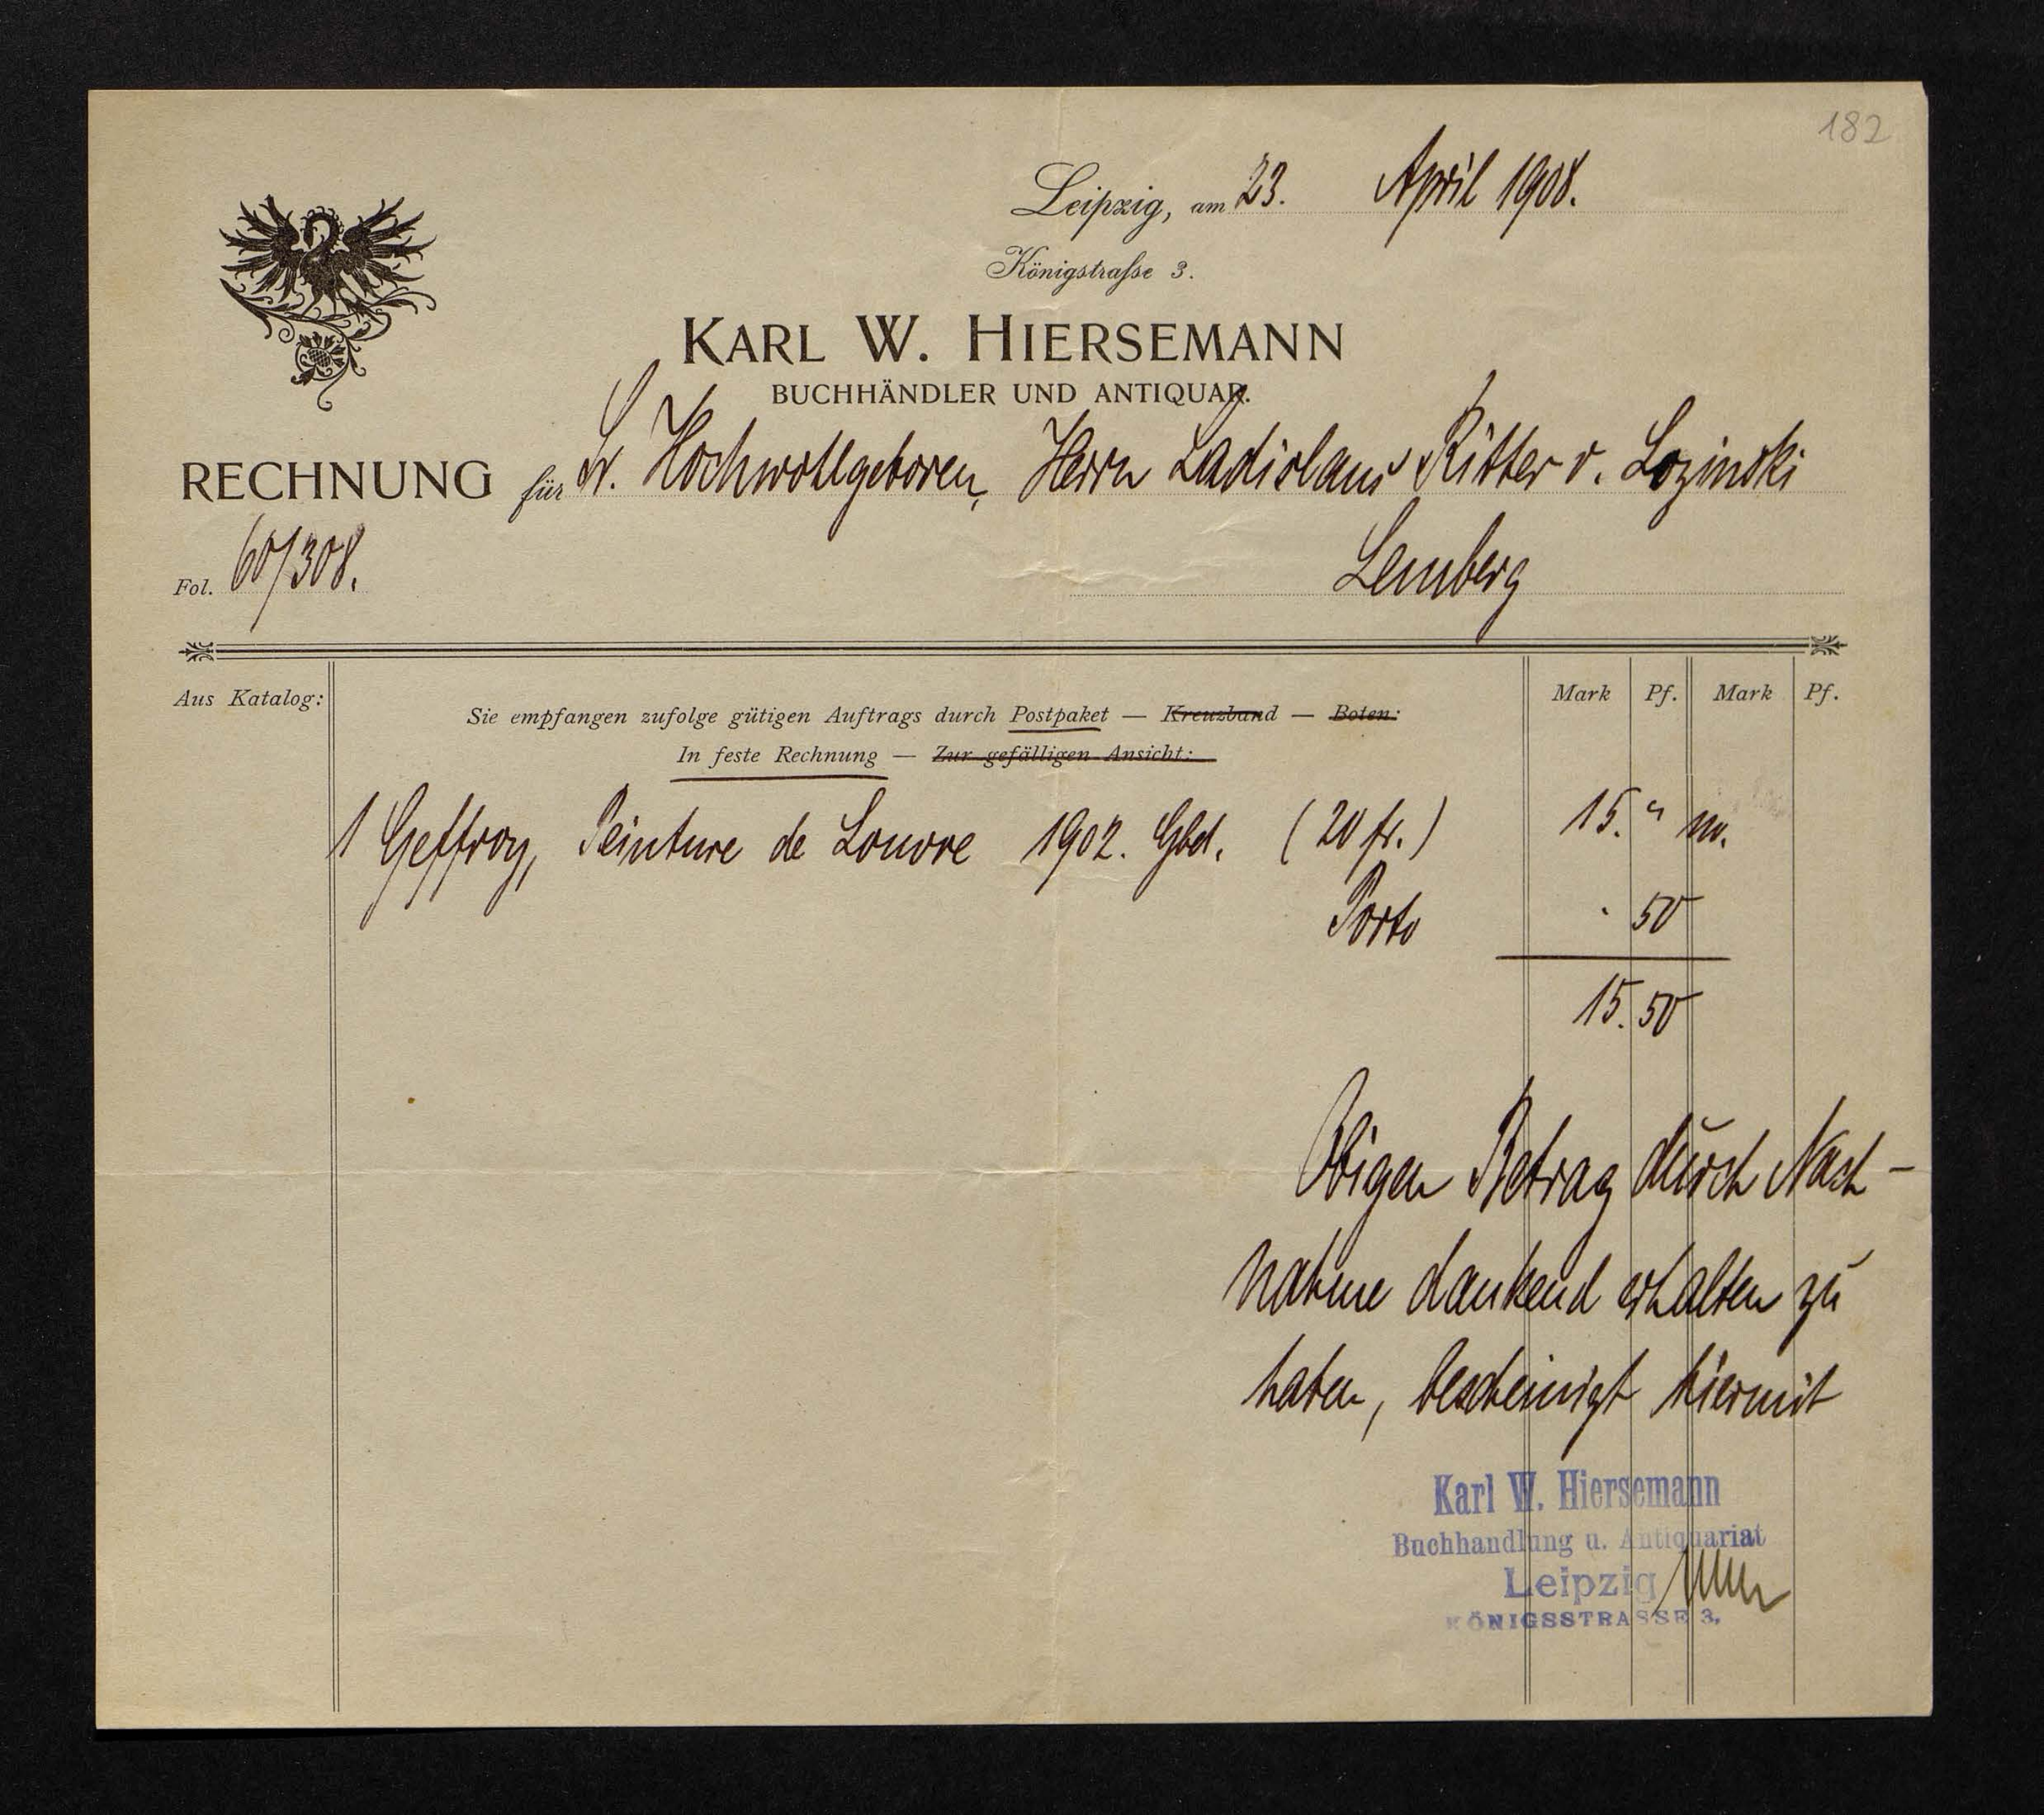 182
Leipzig, am 23. April 1908.
Königstrasse 3.
KARL W. HIERSEMANN
BUCHHÄNDLER UND ANTIQUAR.
RECHNUNG für Sr. Hochwohlgeboren, Herrn Ladislaus Ritter v. Lozinski
Fol. 60/308. Lemberg
Aus Katalog: Mark Pf. Mark Pf.
Sie empfangen zufolge gütigen Auftrags durch Postpaket — Kreuzband — Boten:
In feste Rechnung — Zur gefälligen Ansicht:
1 Geffroy, Peinture de Louvre 1902. Gbd. (20 fr.) 15. " no.
Porto . 50
15. 50
Obigen Betrag durch Nach-
nahme dankend erhalten zu
haben, bescheinigt hiermit
Karl W. Hiersemann
Buchhandlung u. Antiquariat
Leipzig
KÖNIGSSTRASSE 3.